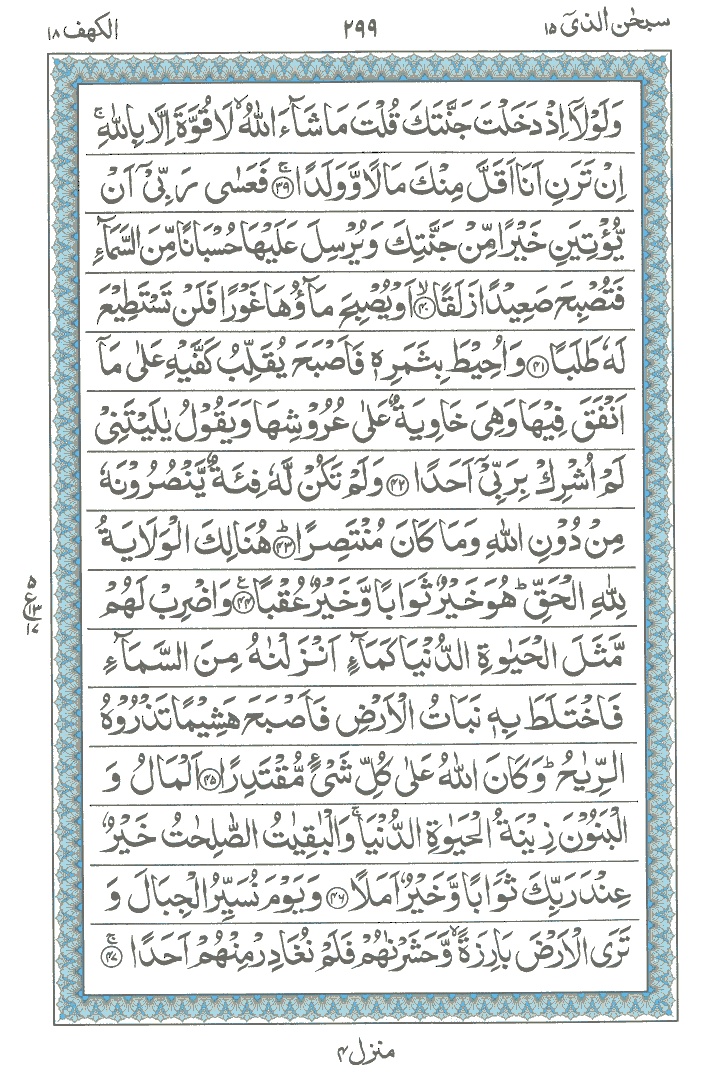 سبحٰن الذیٓ ۱۵
۲۹۹
الکھف ۱۸
وَلَوْلَاۤ اِذْ دَخَلْتَ جَنَّتَكَ قُلْتَ مَا شَآءَ اللّٰهُ ۙ لَا قُوَّةَ اِلَّا بِاللّٰهِ ۚ
اِنْ تَرَنِ اَنَا اَقَلَّ مِنْكَ مَالًا وَّوَلَدًا ۚ ﴿۳۹﴾ فَعَسٰی رَبِّیْۤ اَنْ
یُّؤْتِیَنِ خَیْرًا مِّنْ جَنَّتِكَ وَیُرْسِلَ عَلَیْهَا حُسْبَانًا مِّنَ السَّمَآءِ
فَتُصْبِحَ صَعِیْدًا زَلَقًا ۙ ﴿۴۰﴾ اَوْ یُصْبِحَ مَآؤُهَا غَوْرًا فَلَنْ تَسْتَطِیْعَ
لَهٗ طَلَبًا ﴿۴۱﴾ وَاُحِیْطَ بِثَمَرِهٖ فَاَصْبَحَ یُقَلِّبُ كَفَّیْهِ عَلٰی مَاۤ
اَنْفَقَ فِیْهَا وَهِیَ خَاوِیَةٌ عَلٰی عُرُوْشِهَا وَیَقُوْلُ یٰلَیْتَنِیْ
لَمْ اُشْرِكْ بِرَبِّیْۤ اَحَدًا ﴿۴۲﴾ وَلَمْ تَكُنْ لَّهٗ فِئَةٌ یَّنْصُرُوْنَهٗ
مِنْ دُوْنِ اللّٰهِ وَمَا كَانَ مُنْتَصِرًا ؕ ﴿۴۳﴾ هُنَالِكَ الْوَلَایَةُ
لِلّٰهِ الْحَقِّ ؕ هُوَ خَیْرٌ ثَوَابًا وَّخَیْرٌ عُقْبًا ﴿۴۴﴾ ع وَاضْرِبْ لَهُمْ
۵
ع ۱۳
۱۷
مَّثَلَ الْحَیٰوةِ الدُّنْیَا كَمَآءٍ اَنْزَلْنٰهُ مِنَ السَّمَآءِ
فَاخْتَلَطَ بِهٖ نَبَاتُ الْاَرْضِ فَاَصْبَحَ هَشِیْمًا تَذْرُوْهُ
الرِّیٰحُ ؕ وَكَانَ اللّٰهُ عَلٰی كُلِّ شَیْءٍ مُّقْتَدِرًا ﴿۴۵﴾ اَلْمَالُ وَ
الْبَنُوْنَ زِیْنَةُ الْحَیٰوةِ الدُّنْیَا ۚ وَالْبٰقِیٰتُ الصّٰلِحٰتُ خَیْرٌ
عِنْدَ رَبِّكَ ثَوَابًا وَّخَیْرٌ اَمَلًا ﴿۴۶﴾ وَیَوْمَ نُسَیِّرُ الْجِبَالَ وَ
تَرَی الْاَرْضَ بَارِزَةً ۙ وَّحَشَرْنٰهُمْ فَلَمْ نُغَادِرْ مِنْهُمْ اَحَدًا ۚ ﴿۴۷﴾
منزل ۴